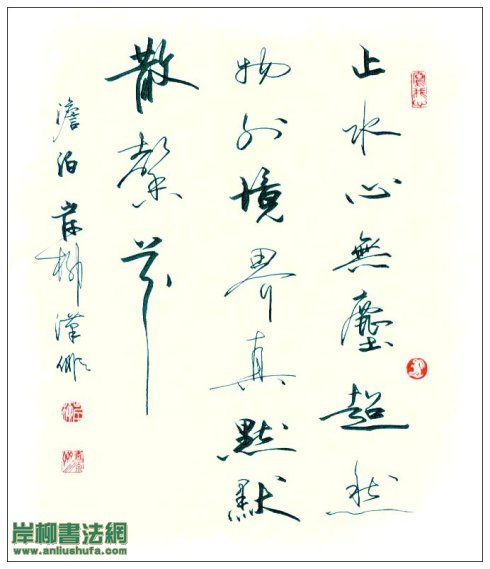 止水心無塵超然
物外境界真默默
散馨芬
澹泊 岸柳 漢俳
岸柳書法網
www.anliushufa.com